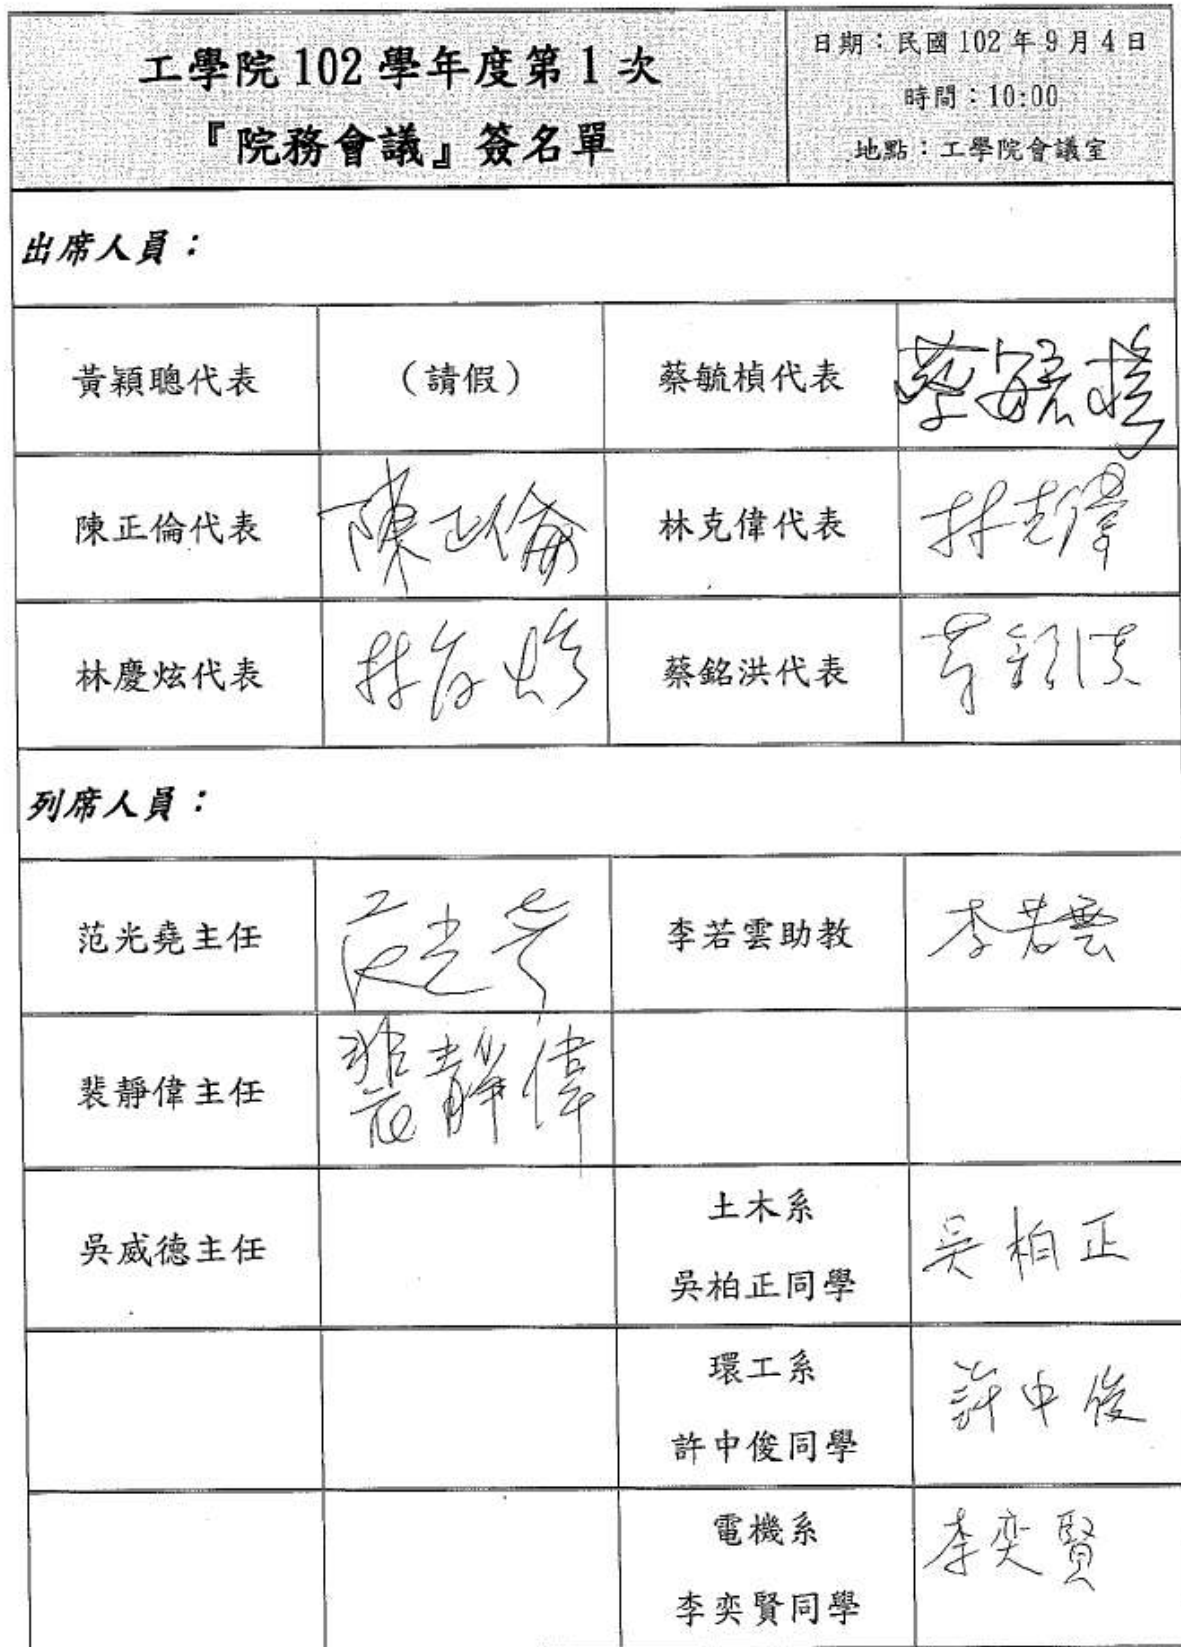 工學院 102 學年度第 1 次
『院務會議』簽名單
日期：民國 102 年 9 月 4 日
時間：10:00
地點：工學院會議室
出席人員：
黃穎聰代表 （請假） 蔡毓楨代表 蔡毓楨
陳正倫代表 陳正倫 林克偉代表 林克偉
林慶炫代表 林慶炫 蔡銘洪代表 蔡銘洪
列席人員：
范光堯主任 范光堯 李若雲助教 李若雲
裴靜偉主任 裴靜偉
吳威德主任
土木系
吳柏正同學 吳柏正
環工系
許中俊同學 許中俊
電機系
李奕賢同學 李奕賢